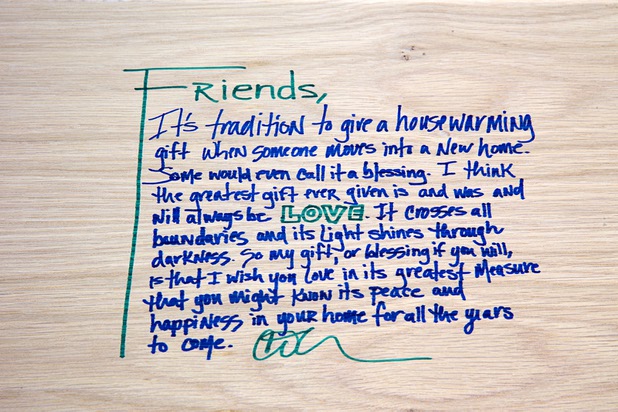 Friends,
It's tradition to give a housewarming
gift when someone moves into a New home.
Some would even call it a blessing. I think
the greatest gift ever given is and was and
will always be LOVE. It crosses all
boundaries and its light shines through
darkness. So my gift, or blessing if you will,
is that I wish you love in its greatest measure
that you might know its peace and
happiness in your home for all the years
to come.